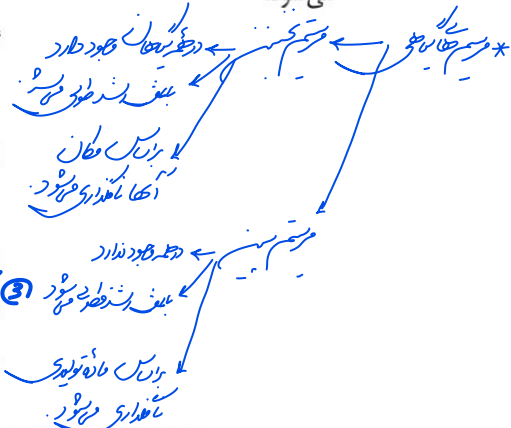 * مریستم های گیاهی ← مریستم نخستین ← در همه گیاهان وجود دارد
باعث رشد طولی می‌شود.
براساس مکان
آنها نامگذاری می‌شود.
مریستم پسین ← در همه وجود ندارد
باعث رشد قطری می‌شود ③
براساس ماده تولیدی
نامگذاری می‌شود.